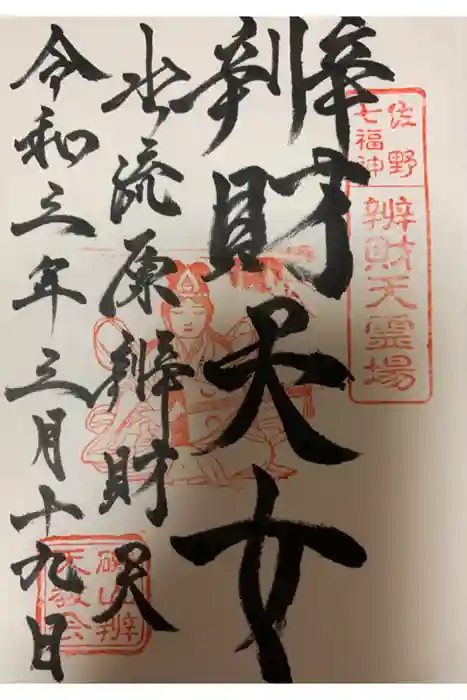 佐野
七福神
辨財天霊場
辨財天女
水流原辨財天
令和三年三月十九日
磯山辨
天教会